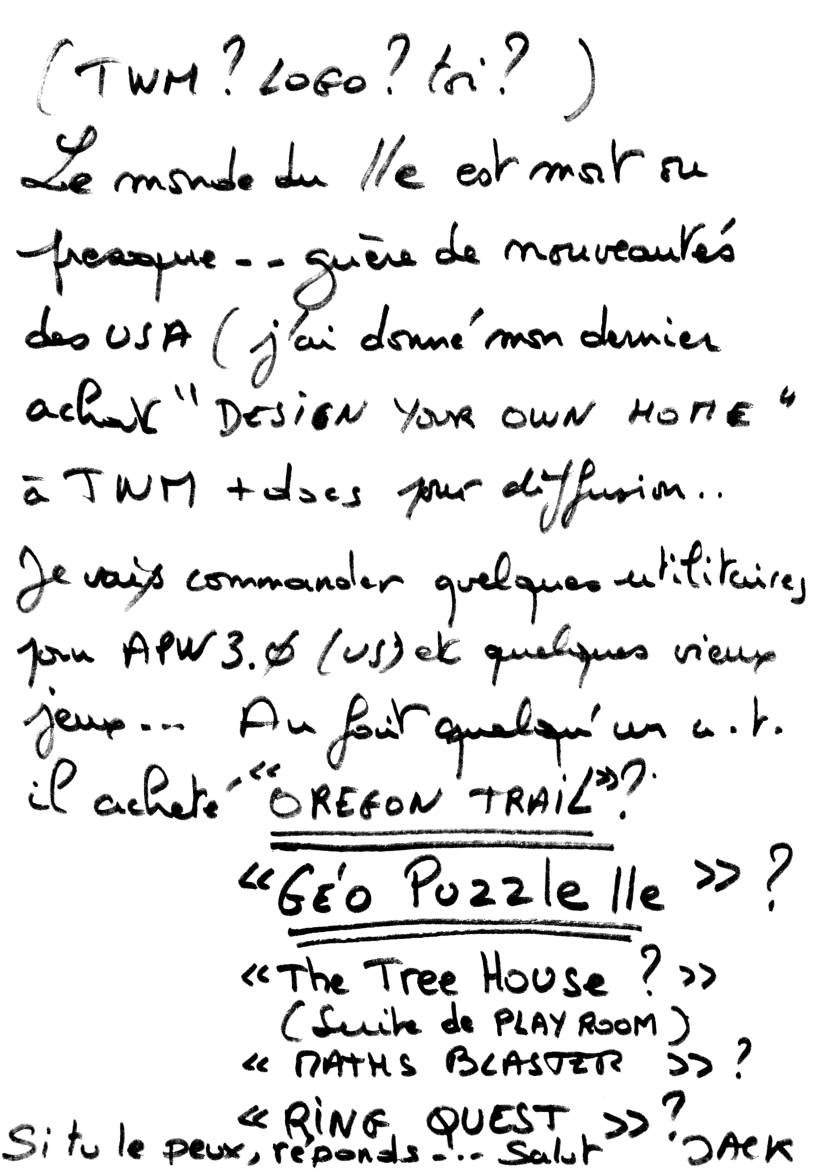 (TWM ? LOGO ? toi ? )
Le monde du //e est mort ou
presque -- guère de nouveautés
des USA ( j'ai donné mon dernier
achat "DESIGN YOUR OWN HOME"
à TWM + docs pour diffusion..
Je vais commander quelques utilitaires
pour APW 3.0 (US) et quelques vieux
jeux... Au fait quelqu'un a.t.
il acheté "OREGON TRAIL" ?
«GÉO PUZZLE //e » ?
«The Tree House ? »
(Suite de PLAY ROOM)
« MATHS BLASTER » ?
« RING QUEST » ?
Si tu le peux, réponds --.. Salut JACK